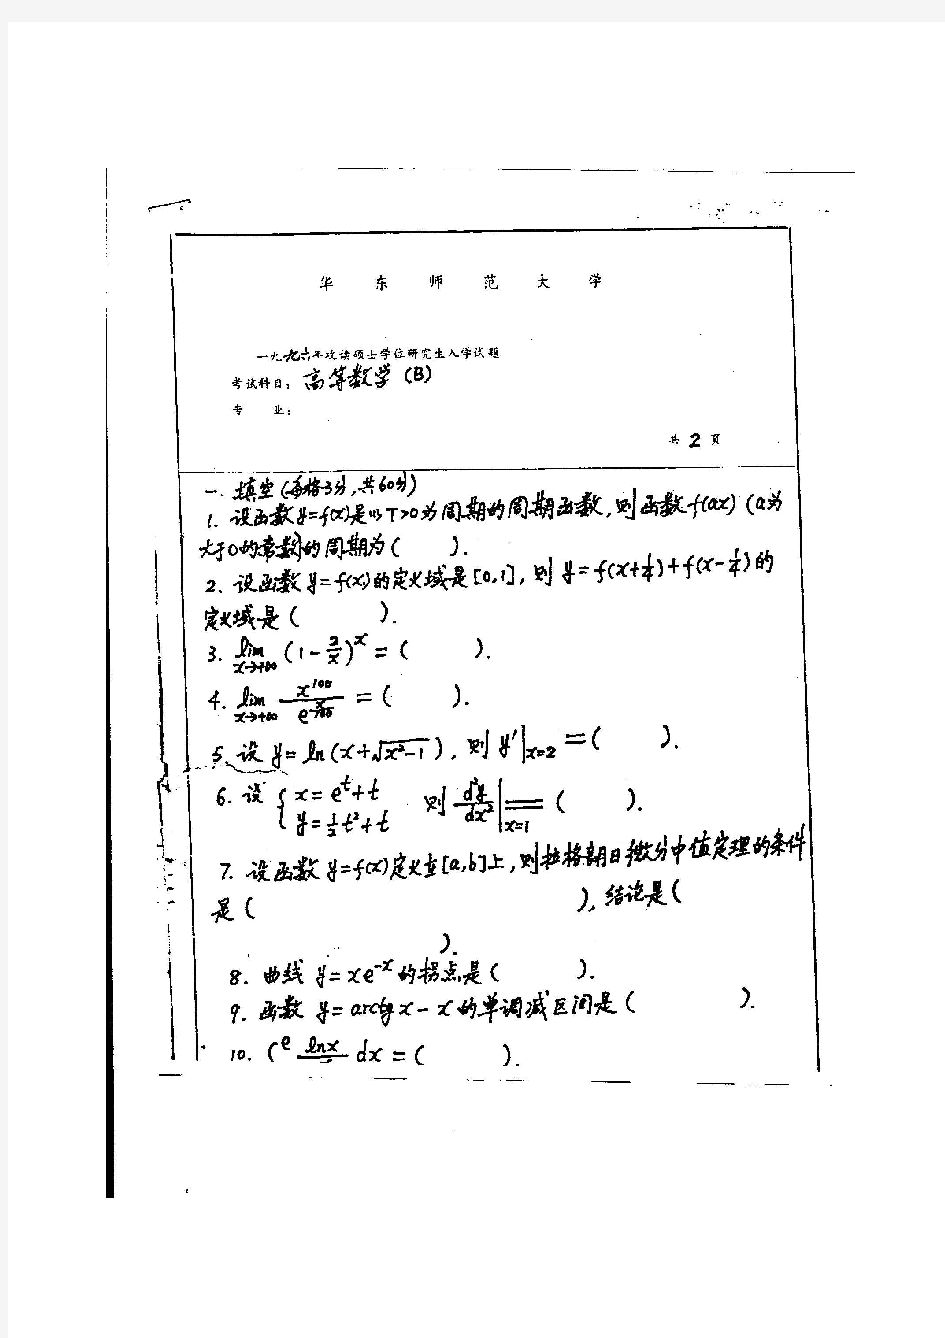 华东师范大学
一九九六年攻读硕士学位研究生入学试题
考试科目：高等数学(B)
专业：
共2页
一.填空(每格3分,共60分)
1. 设函数y=f(x)是以T>0为周期的周期函数,则函数f(ax)(a为
大于0的常数)的周期为( ).
2. 设函数y=f(x)的定义域是[0,1],则y=f(x+1/4)+f(x-1/4)的
定义域是( ).
3. lim x→+∞ (1-2/x)^x=( ).
4. lim x→+∞ x^100/ =( ).
5. 设y=ln(x+√(x²-1)),则y'|x=2=( ).
6. 设{x=e^t+t y=½t²+t 则d²y/dx²|x=1=( ).
7. 设函数y=f(x)定义在[a,b]上,则拉格朗日微分中值定理的条件
是( ),结论是(
).
8. 曲线y=xe^-x的拐点是( ).
9. 函数y=arctg x-x的单调减区间是( ).
10. ∫^e lnx dx=( ).